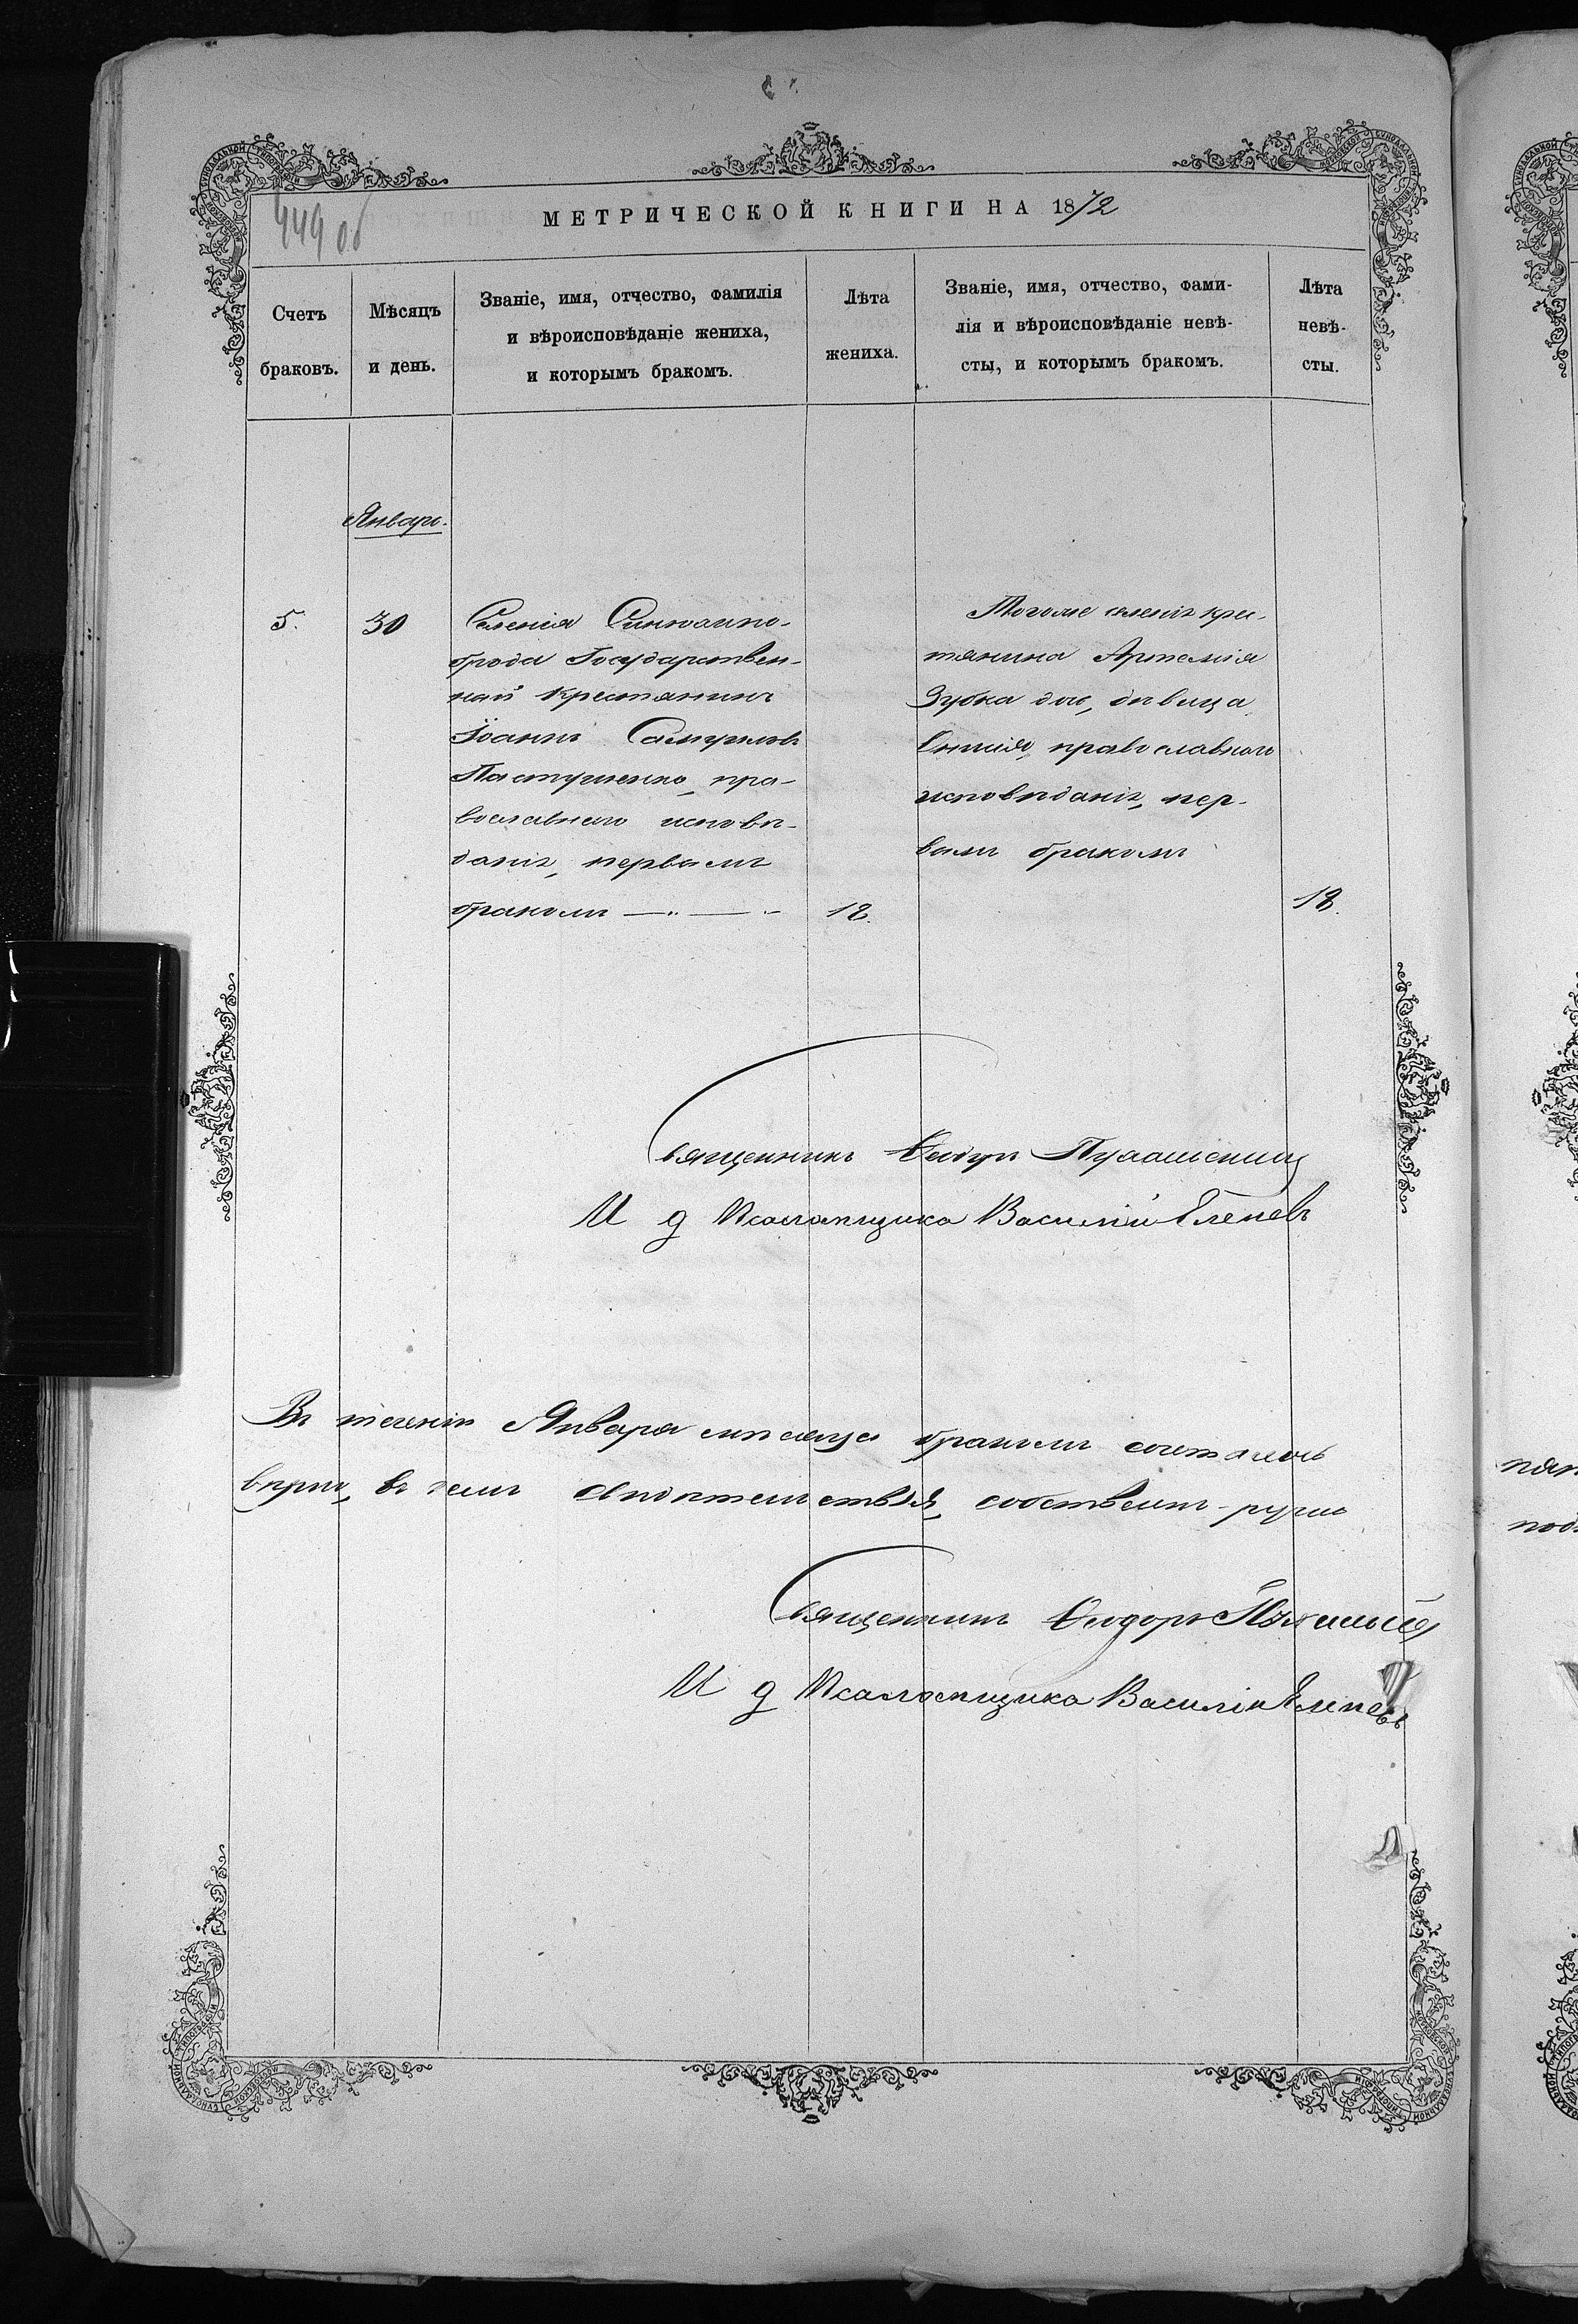 449 об
МЕТРИЧЕСКОЙ КНИГИ НА 1872
Счетъ браковъ.
Мѣсяцъ и день.
Званіе, имя, отчество, фамилія
и вѣроисповѣданіе жениха,
и которымъ бракомъ.
Лѣта
жениха.
Званіе, имя, отчество, фами-
лія и вѣроисповѣданіе невѣ-
сты, и которымъ бракомъ.
Лѣта
невѣ-
сты.
Январь.
5.
30
Селенія Синюхино-
брода Государствен-
ный крестьянинъ
Іоаннъ
Пастушенко, пра-
вославнаго исповѣ-
данія, первымъ
бракомъ
18.
Тогоже селенія кре-
стянина Артемія
Зубка дочь, дѣвица
православнаго
исповѣданія, пер-
вымъ бракомъ
18.
Священникъ Ѳеодоръ
И д Псаломщика Василій
Въ теченіи Января мѣсяца бракомъ сочетались
вѣрно, въ чемъ свидѣтельствуя, собственно-ручно
пят
подп
Священникъ Ѳеодоръ
И д Псаломщика Василій